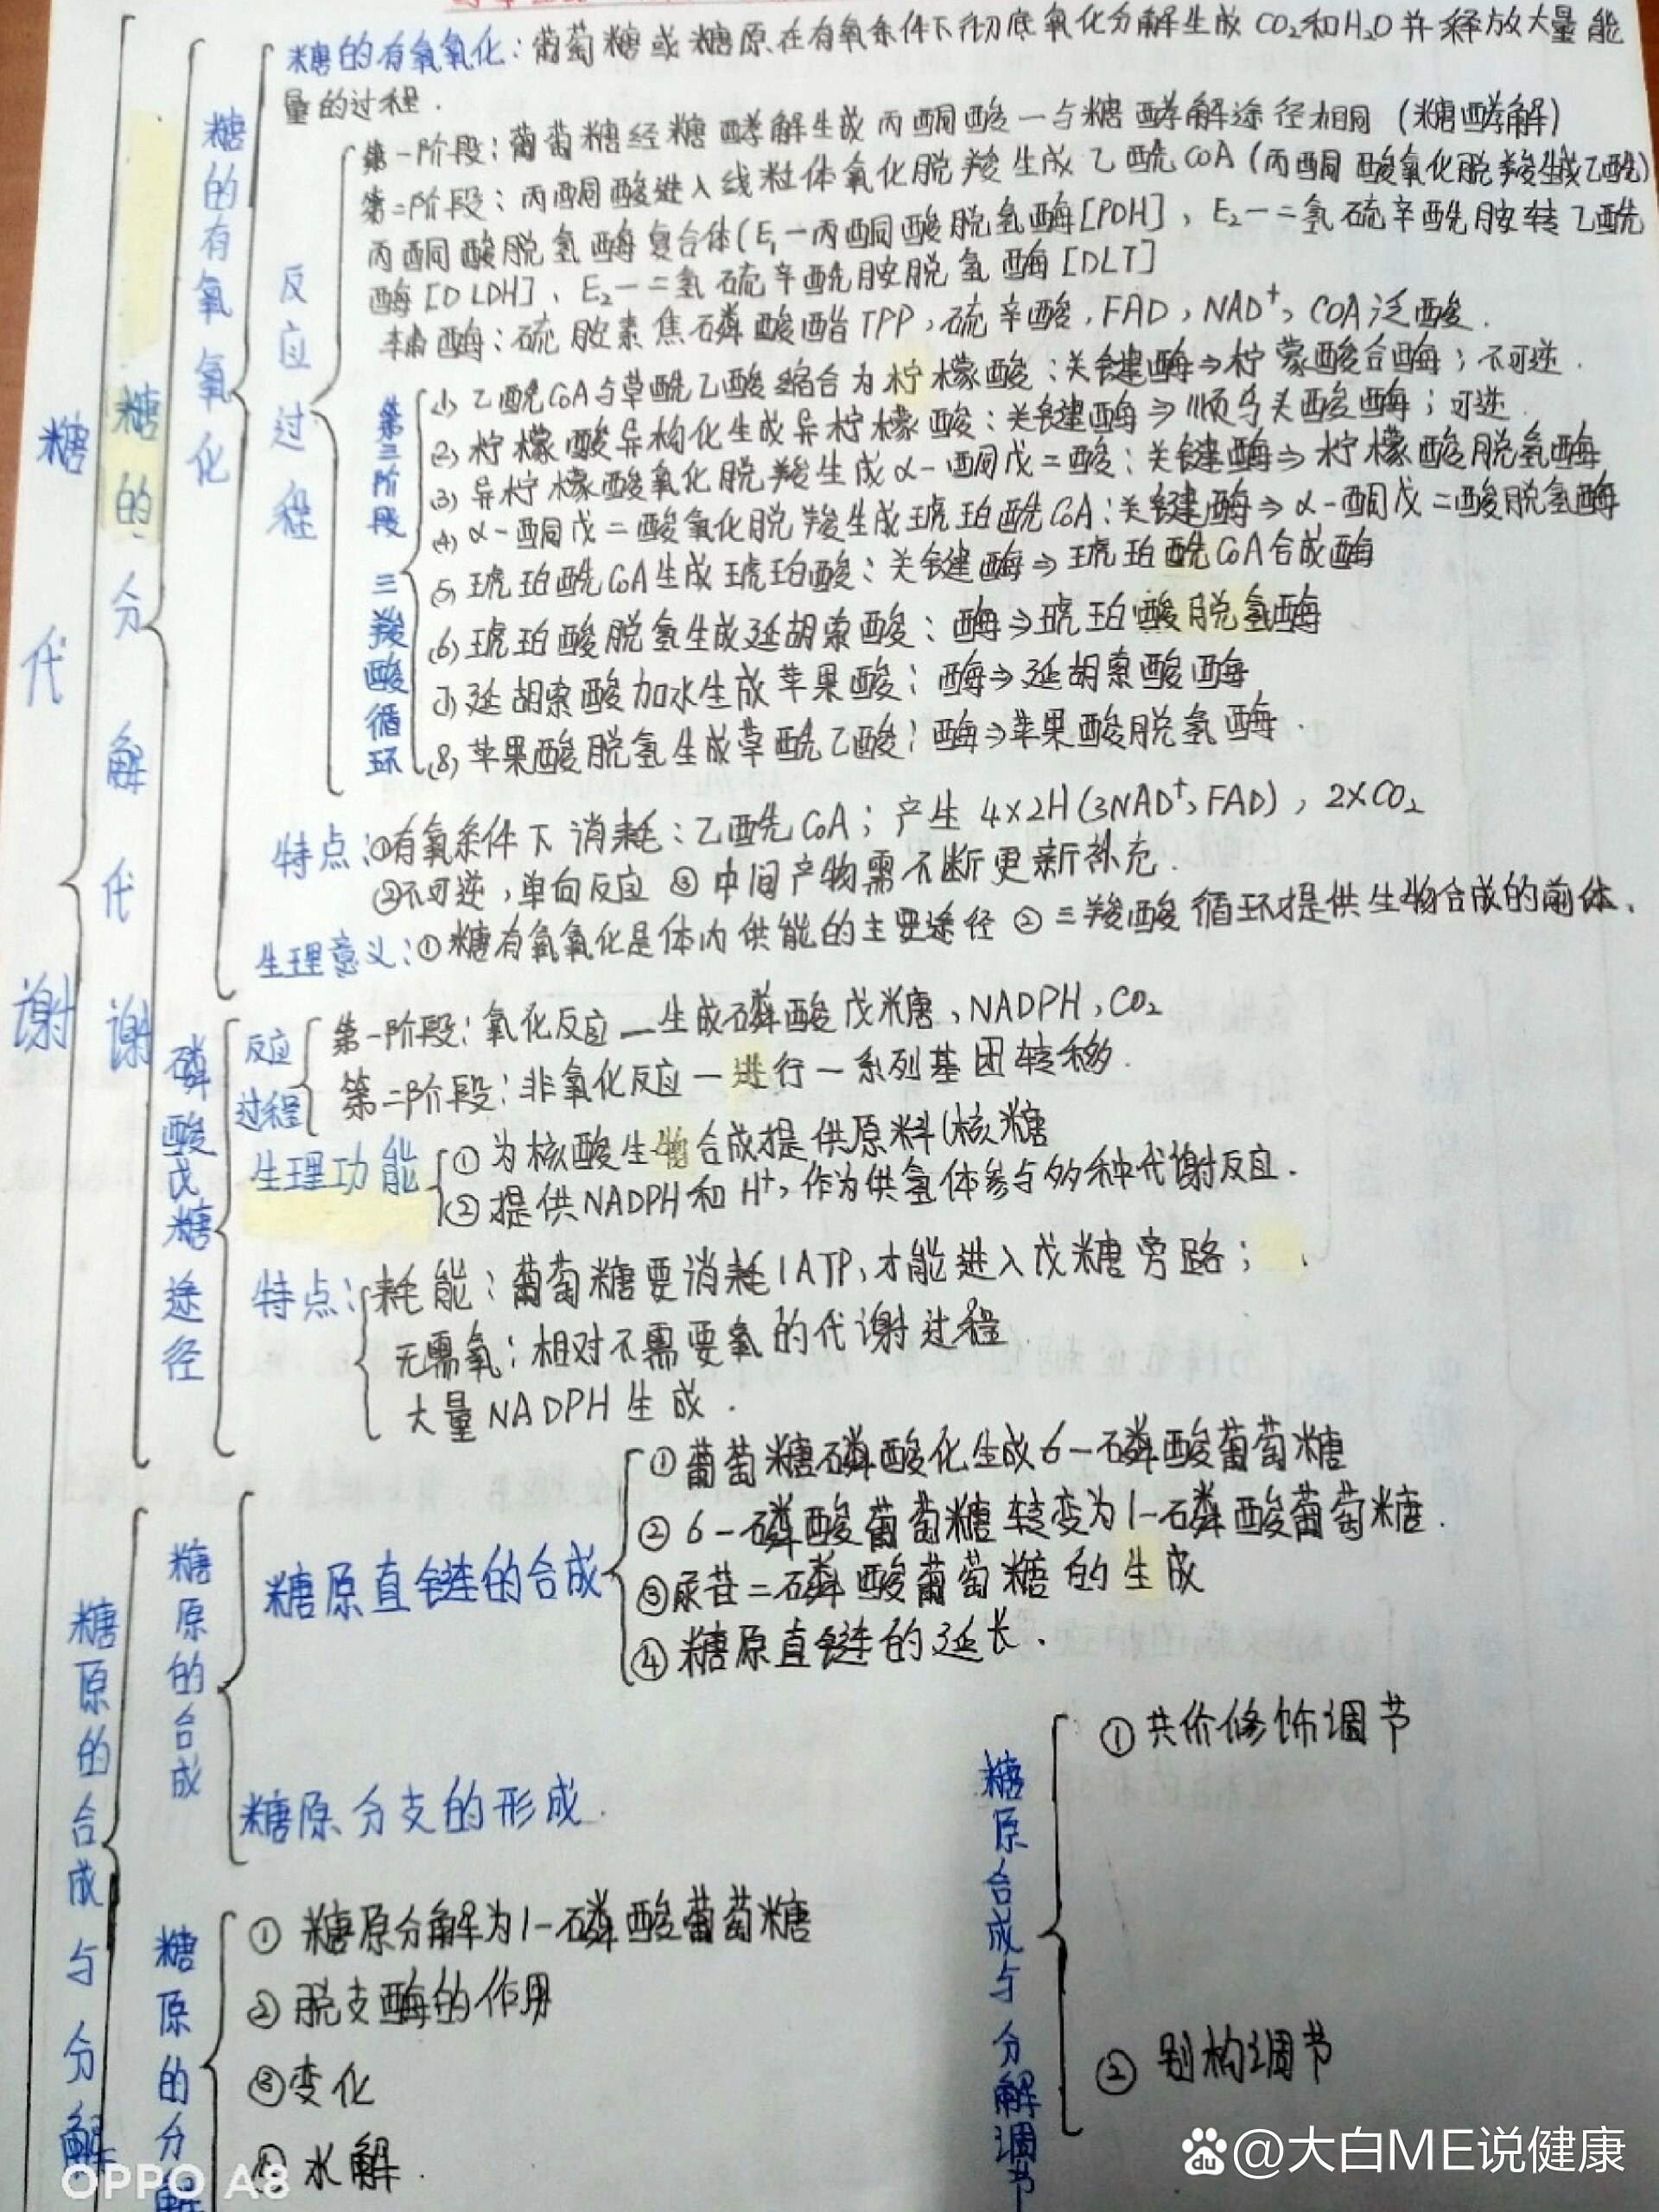 糖代谢
糖的分解代谢
糖的有氧氧化
糖的有氧氧化：葡萄糖或糖原在有氧条件下彻底氧化分解生成CO₂和H₂O并释放大量能
量的过程.
反应过程
第一阶段：葡萄糖经糖酵解生成丙酮酸—与糖酵解途径相同（糖酵解）
第二阶段：丙酮酸进入线粒体氧化脱羧生成乙酰COA（丙酮酸氧化脱羧生成乙酰）
丙酮酸脱氢酶复合体（E₁—丙酮酸脱氢酶[PDH]，E₂—二氢硫辛酰胺转乙酰
酶[DLDH]、E₂—二氢硫辛酰胺脱氢酶[DLT]
辅酶：硫胺素焦磷酸酯TPP，硫辛酸，FAD，NAD⁺，COA泛酸.
第三阶段 三羧酸循环
(1) 乙酰CoA与草酰乙酸缩合为柠檬酸：关键酶⇒柠檬酸合酶；不可逆.
(2) 柠檬酸异构化生成异柠檬酸：关键酶⇒顺乌头酸酶；可逆.
(3) 异柠檬酸氧化脱羧生成α-酮戊二酸：关键酶⇒柠檬酸脱氢酶
(4) α-酮戊二酸氧化脱羧生成琥珀酰CoA：关键酶⇒α-酮戊二酸脱氢酶
(5) 琥珀酰CoA生成琥珀酸：关键酶⇒琥珀酰CoA合成酶
(6) 琥珀酸脱氢生成延胡索酸：酶⇒琥珀酸脱氢酶
(7) 延胡索酸加水生成苹果酸：酶⇒延胡索酸酶
(8) 苹果酸脱氢生成草酰乙酸：酶⇒苹果酸脱氢酶.
特点：①有氧条件下消耗：乙酰CoA；产生4×2H(3NAD⁺，FAD)，2×CO₂
②不可逆，单向反应 ③中间产物需不断更新补充.
生理意义：①糖有氧氧化是体内供能的主要途径 ②三羧酸循环提供生物合成的前体.
磷酸戊糖途径
反应过程
第一阶段：氧化反应—生成磷酸戊糖，NADPH，CO₂
第二阶段：非氧化反应—进行一系列基团转移.
生理功能
①为核酸生物合成提供原料（核糖
②提供NADPH和H⁺，作为供氢体参与多种代谢反应.
特点：耗能：葡萄糖要消耗1ATP，才能进入戊糖旁路；
无需氧：相对不需要氧的代谢过程
大量NADPH生成.
糖原的合成与分解
糖原的合成
糖原直链的合成
①葡萄糖磷酸化生成6-磷酸葡萄糖
②6-磷酸葡萄糖转变为1-磷酸葡萄糖.
③尿苷二磷酸葡萄糖的生成
④糖原直链的延长.
糖原分支的形成.
糖原的分解
①糖原分解为1-磷酸葡萄糖
②脱支酶的作用
③变化
④水解.
糖原合成与分解调节
①共价修饰调节
②别构调节
OPPO A8
@大白ME说健康